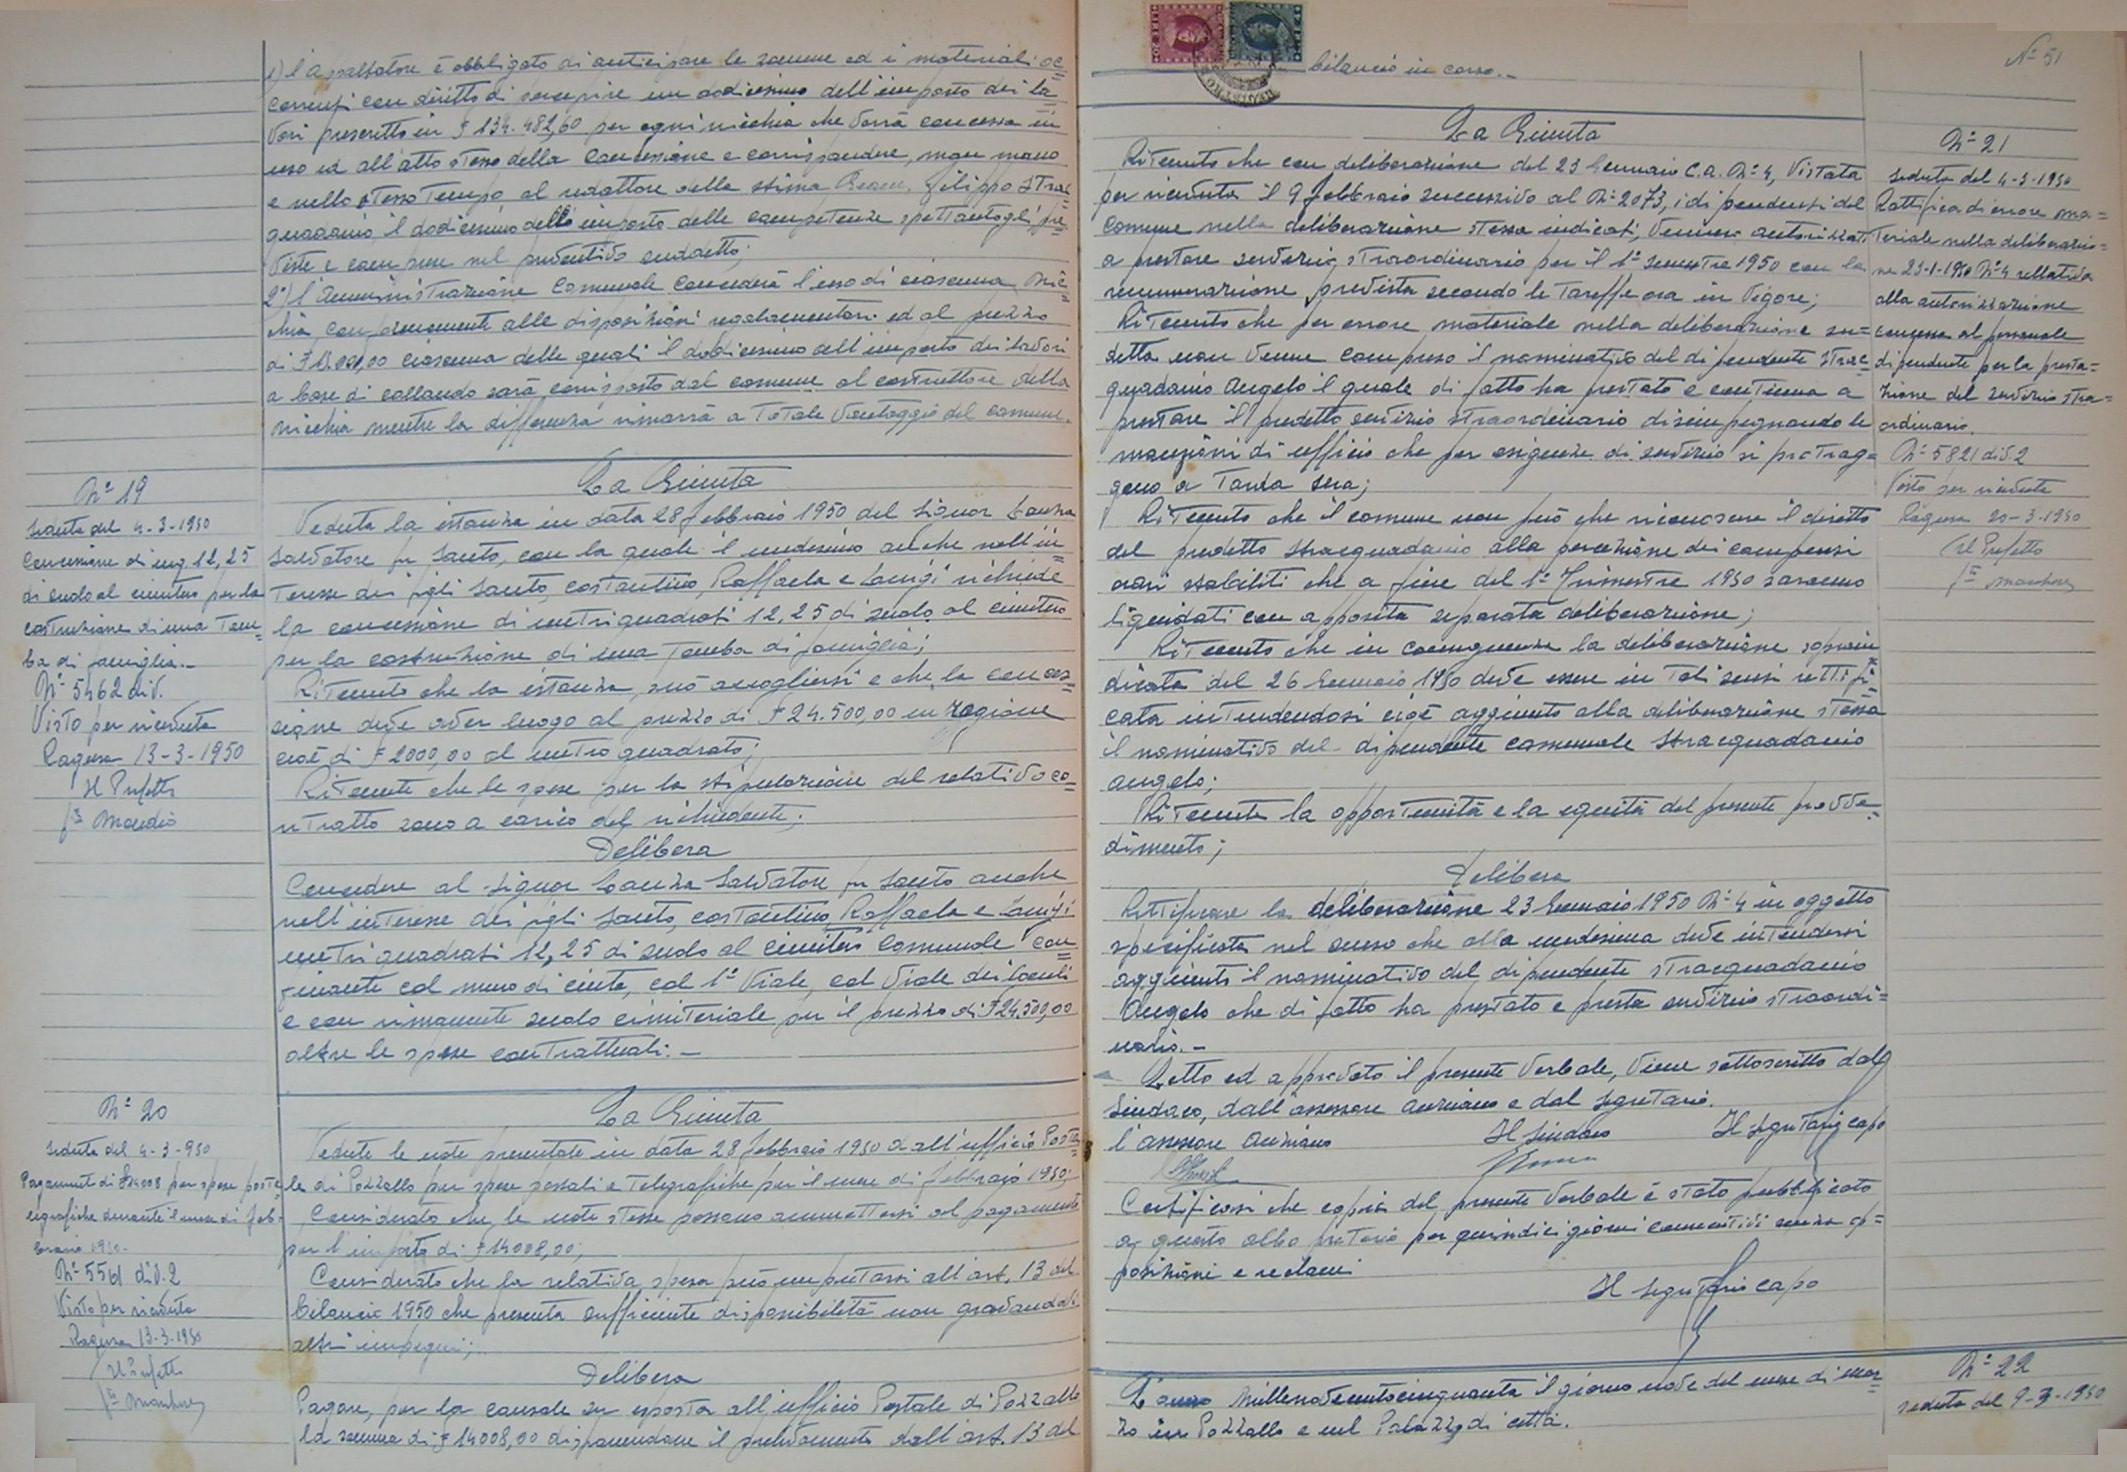 1) l'appaltatore è obbligato di anticipare le somme ed i materiali oc=
correnti con diritto di percepire un dodicesimo dell'importo dei la=
vori prescritto in £ 134.482,60 per ogni nicchia che verrà concessa in
uso ed all'atto stesso della concessione e corrispondere, man mano
e nello stesso tempo al redattore della stima Geom. Filippo Strac=
quadanio, il dodicesimo dello importo delle competenze spettantegli pre=
viste e comprese nel preventivo sudetto;
2°) l'Amministrazione Comunale concederà l'uso di ciascuna nic=
chia conformemente alle disposizioni regolamentari ed al prezzo
di £ ciascuna delle quali il dodicesimo dell'importo dei lavori
a base di collaudo sarà corrisposto dal comune al costruttore della
nicchia mentre la differenza rimarrà a totale vantaggio del comune.
N° 19
Seduta del 4-3-1950
Concessione di mq. 12,25
di suolo al cimitero per la
costruzione di una Tom=
ba di famiglia.-
N° 5462 div.
Visto per ricevuta
Ragusa 13-3-1950
Il Prefetto
La Giunta
Veduta la istanza in data 28 febbraio 1950 del Signor Causa
Salvatore fu Santo, con la quale il medesimo anche nell'in=
teresse dei figli Santo, Costantino, Raffaela e Luigi richiede
la concessione di metri quadrati 12,25 di suolo al cimitero
per la costruzione di una tomba di famiglia;
Ritenuto che la istanza può accogliersi e che la conces=
sione deve aver luogo al prezzo di £ 24.500,00 in ragione
cioè di £ 2000,00 al metro quadrato;
Ritenuto che le spese per la stipulazione del relativo co=
ntratto sono a carico del richiedente;
Delibera
Concedere al Signor Causa Salvatore fu Santo anche
nell'interesse dei figli Santo, Costantino, Raffaela e Luigi
metri quadrati 12,25 di suolo al cimitero Comunale con=
finante col muro di cinta, col 1° Viale, col Viale dei loculi
e con rimanente suolo cimiteriale per il prezzo di £ 24.500,00
oltre le spese contrattuali.-
N° 20
Seduta del 4-3-950
Pagamento di £ 14008 per spese poste=
legrafiche durante il mese di feb=
braio 1950.-
N° 5561 div. 2
Visto per ricevuta
Ragusa 13-3-1950
Il Prefetto
La Giunta
Vedute le note presentate in data 28 febbraio 1950 dall'ufficio Posta=
le di Pozzallo per spese postali e telegrafiche per il mese di febbraio 1950;
Considerato che le note stesse possono ammettersi al pagamento
per l'importo di £ 14008,00;
Considerato che la relativa spesa può imputarsi all'art. 13 del
bilancio 1950 che presenta sufficiente disponibilità non gravandovi
altri impegni;
Delibera
Pagare, per la causale su esposta all'ufficio Postale di Pozzallo
la somma di £ 14008,00 disponendone il prelevamento dall'art. 13 del
N° 51
bilancio in corso.-
La Giunta
Ritenuto che con deliberazione del 23 Gennaio c.a. N° 4, Vistata
per ricevuta il 9 febbraio successivo al N° 2073, i dipendenti del
Comune nella deliberazione stessa indicati, vennero autorizzati
a prestare servizio straordinario per il 1° semestre 1950 con la
remunerazione prevista secondo le tariffe ora in vigore;
Ritenuto che per errore materiale nella deliberazione su=
detta non venne compreso il nominativo del dipendente Strac=
quadanio Angelo il quale di fatto ha prestato e continua a
prestare il predetto servizio straordinario disimpegnando le
mansioni di ufficio che per esigenze di servizio si protrag=
gono a tarda sera;
Ritenuto che il comune non può che riconoscere il diritto
del predetto Stracquadanio alla percezione dei compensi
orari stabiliti che a fine del 1° Trimestre 1950 saranno
liquidati con apposita separata deliberazione;
Ritenuto che in conseguenza la deliberazione soprain=
dicata del 26 Gennaio 1950 deve essere in tali sensi rettifi=
cata intendendosi cioè aggiunto alla deliberazione stessa
il nominativo del dipendente comunale Stracquadanio
Angelo;
Ritenuta la opportunità e la equità del presente provve=
dimento;
Delibera
Rettificare la deliberazione 23 Gennaio 1950 N° 4 in oggetto
specificata nel senso che alla medesima deve intendersi
aggiunto il nominativo del dipendente Stracquadanio
Angelo che di fatto ha prestato e presta servizio straordi=
nario.-
Letto ed approvato il presente Verbale, viene sottoscritto dal
Sindaco, dall'assessore anziano e dal Segretario.
l'assessore anziano Il Sindaco Il Segretario capo
Certificasi che copia del presente Verbale è stato pubblicato
a questo albo pretorio per quindici giorni consecutivi senza op=
posizioni e reclami
Il Segretario capo
N° 21
Seduta del 4-3-1950
Rettifica di errore ma=
teriale nella deliberazio=
ne 23-1-1950 N° 4 relativa
alla autorizzazione
concessa al personale
dipendente per la presta=
zione del servizio stra=
ordinario.
N° 5821 div. 2
Visto per ricevuta
Ragusa 20-3-1950
Il Prefetto
L'anno Millenovecentocinquanta il giorno nove del mese di mar=
zo in Pozzallo e nel Palazzo di città.
N° 22
Seduta del 9-3-1950